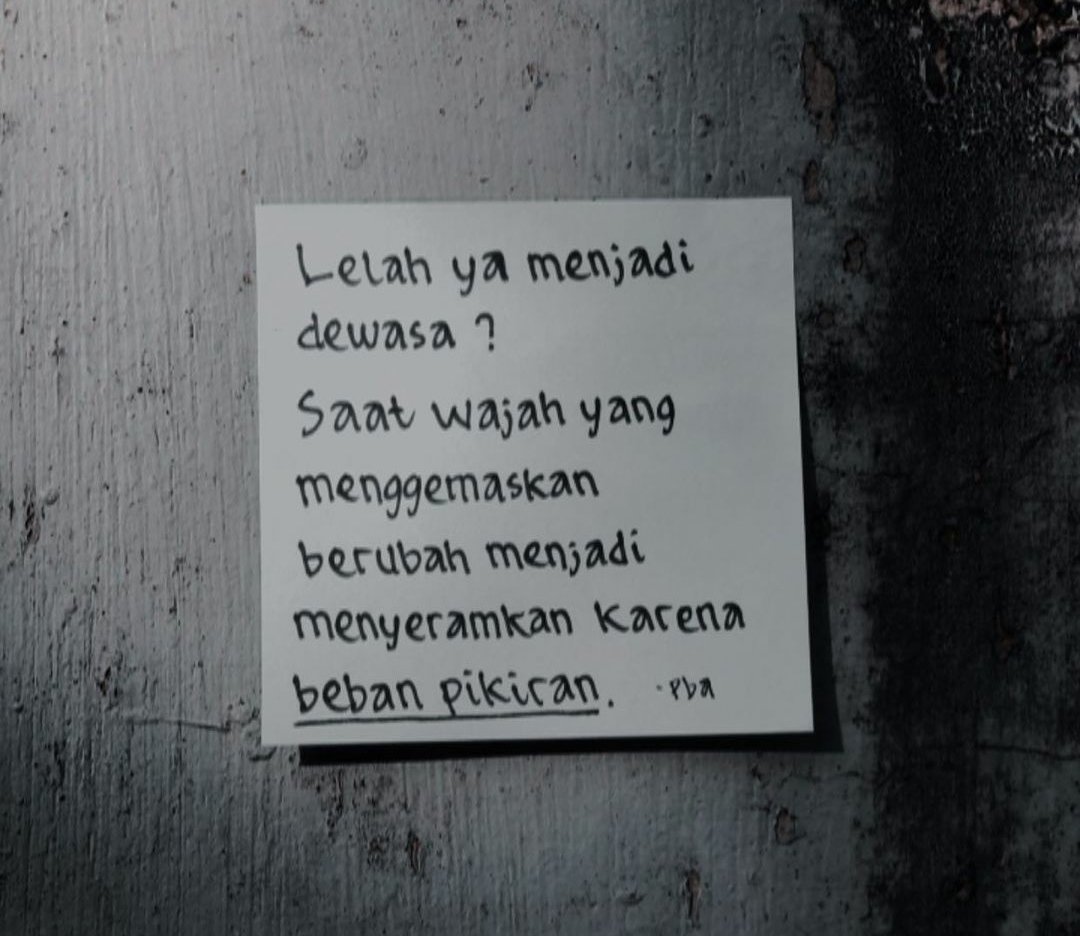 Lelah ya menjadi
dewasa ?
Saat wajah yang
menggemaskan
berubah menjadi
menyeramkan karena
beban pikiran. •pba